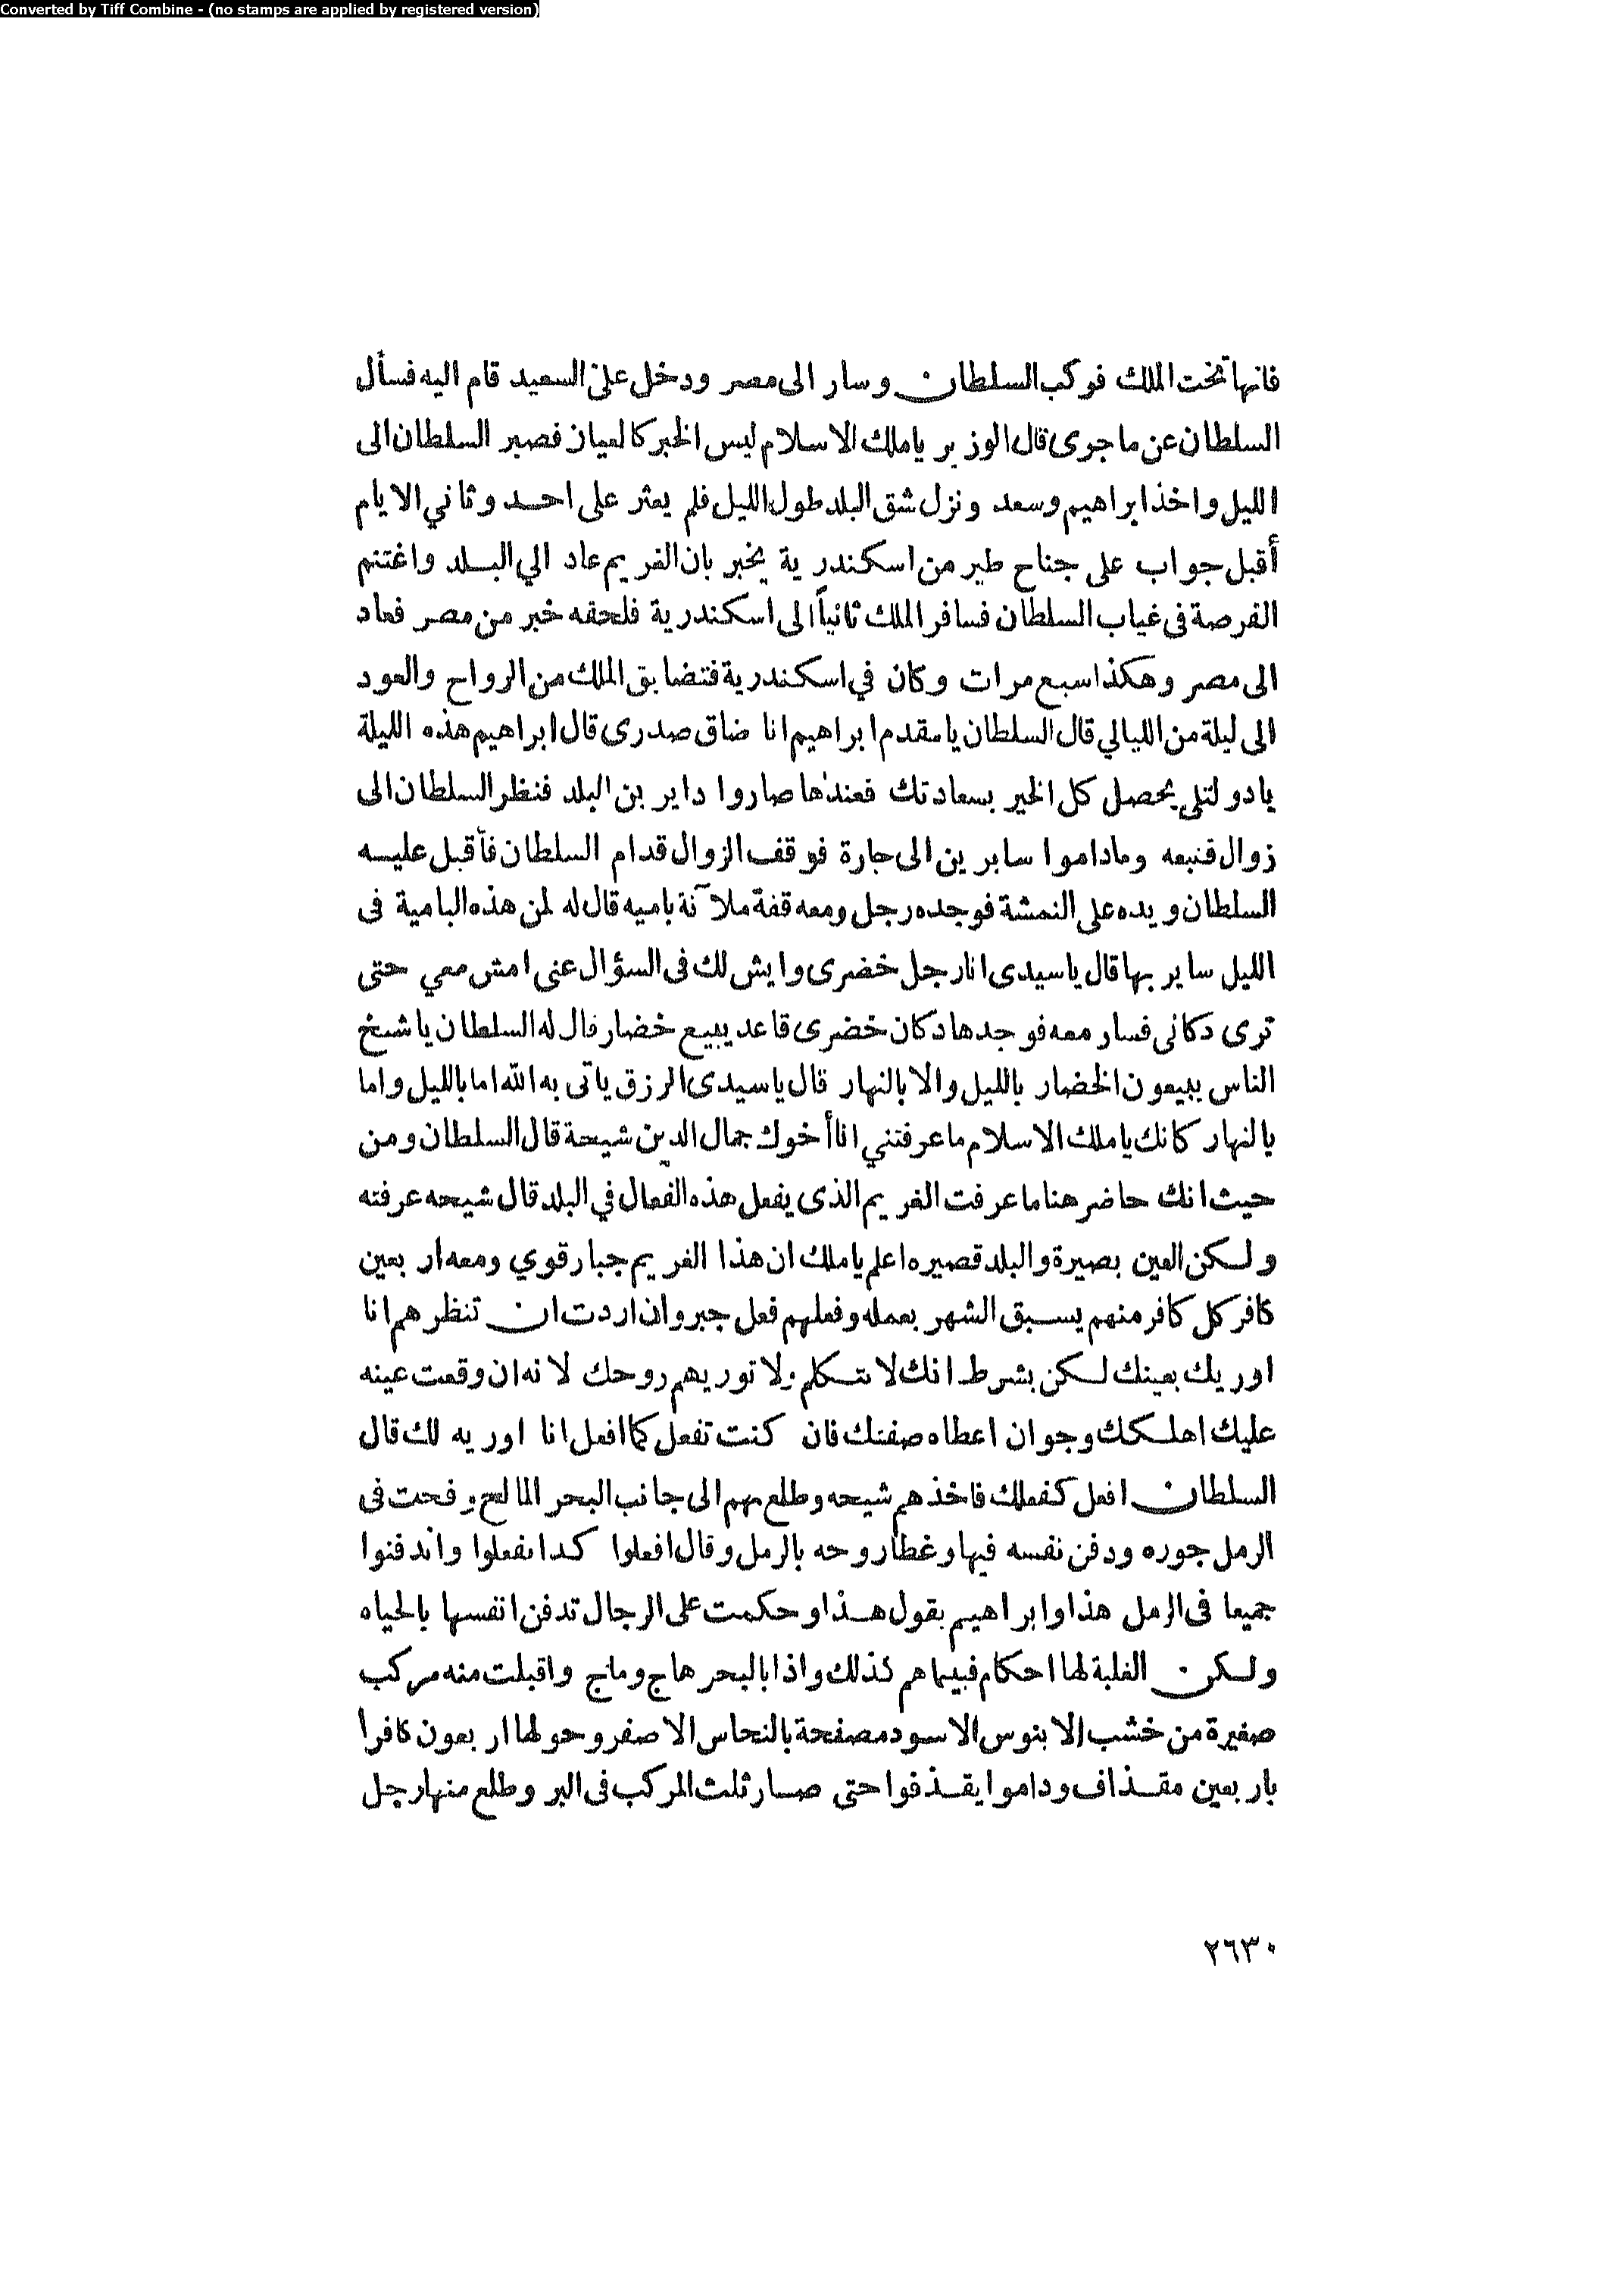 Converted by Tiff Combine - (no stamps are applied by registered version)
فانها تخت الملك فوكب السلطان وسار الى مصر ودخل على السعيد قام اليه فسأل
السلطان عن ما جرى قال الوزير ياملك الاسلام ليس الخبر كالعيان فصبر السلطان الى
الليل واخذ ابراهيم وسعد ونزل شق البلد طول الليل فلم يعثر على احد وثاني الايام
أقبل جواب على جناح طير من اسكندرية يخبر بان الغريم عاد الي البلد واغتنم
الفرصة فى غياب السلطان فسافر الملك ثانياً الى اسكندرية فلحقه خبر من مصر فعاد
الى مصر وهكذا سبع مرات وكان في اسكندرية فتضايق الملك من الرواح والعود
الى ليلة من الليالي قال السلطان يا مقدم ابراهيم انا ضاق صدرى قال ابراهيم هذه الليلة
يا دولتلى يحصل كل الخير بسعادتك فعندها صاروا داير بن البلد فنظر السلطان الى
زوال فتبعه وماداموا سايرين الى حارة فوقف الزوال قدام السلطان فأقبل عليه
السلطان ويده على النمشة فوجده رجل ومعه قفة ملآنة باميه قال له لمن هذه البامية فى
الليل ساير بها قال ياسيدى انا رجل خضرى وايش لك فى السؤال عنى امش معي حتى
ترى دكانى فسار معه فوجدها دكان خضرى قاعد يبيع خضار قال له السلطان يا شيخ
الناس يبيعون الخضار بالليل والا بالنهار قال ياسيدى الرزق ياتى به الله اما بالليل واما
بالنهار كانك ياملك الاسلام ماعرفتني انا أخوك جمال الدين شيحة قال السلطان ومن
حيث انك حاضر هنا ماعرفت الغريم الذى يفعل هذه الفعال في البلد قال شيحه عرفته
ولكن العين بصيرة والبلد قصيره اعلم ياملك ان هذا الغريم جبار قوي ومعه اربعين
كافر كل كافر منهم يسبق الشهر بعمله وفعلهم فعل جبر وان اردت ان تنظرهم انا
اوريك بعينك لكن بشرط انك لا تتكلم ولا توريهم روحك لانه ان وقعت عينه
عليك اهلكك وجوان اعطاه صفتك فان كنت تفعل كما افعل انا اوريه لك قال
السلطان افعل كفعلك فاخذهم شيحه وطلع بهم الى جانب البحر المالح وفحت فى
الرمل جوره ودفن نفسه فيها وغطا روحه بالرمل وقال افعلوا كدا نفعلوا واندفنوا
جميعا فى الرمل هذا وابراهيم بقول هذا وحكمت على الرجال تدفن انفسها بالحياه
ولكن الغلبة لها احكام فبينما هم كذلك واذا بالبحر هاج وماج واقبلت منه مركب
صغيرة من خشب الابنوس الاسود مصفحة بالنحاس الاصفر وحولها اربعون كافرا
باربعين مقذاف وداموا يقذفوا حتى صار ثلث المركب فى البر وطلع منها رجل
٢٦٣٠